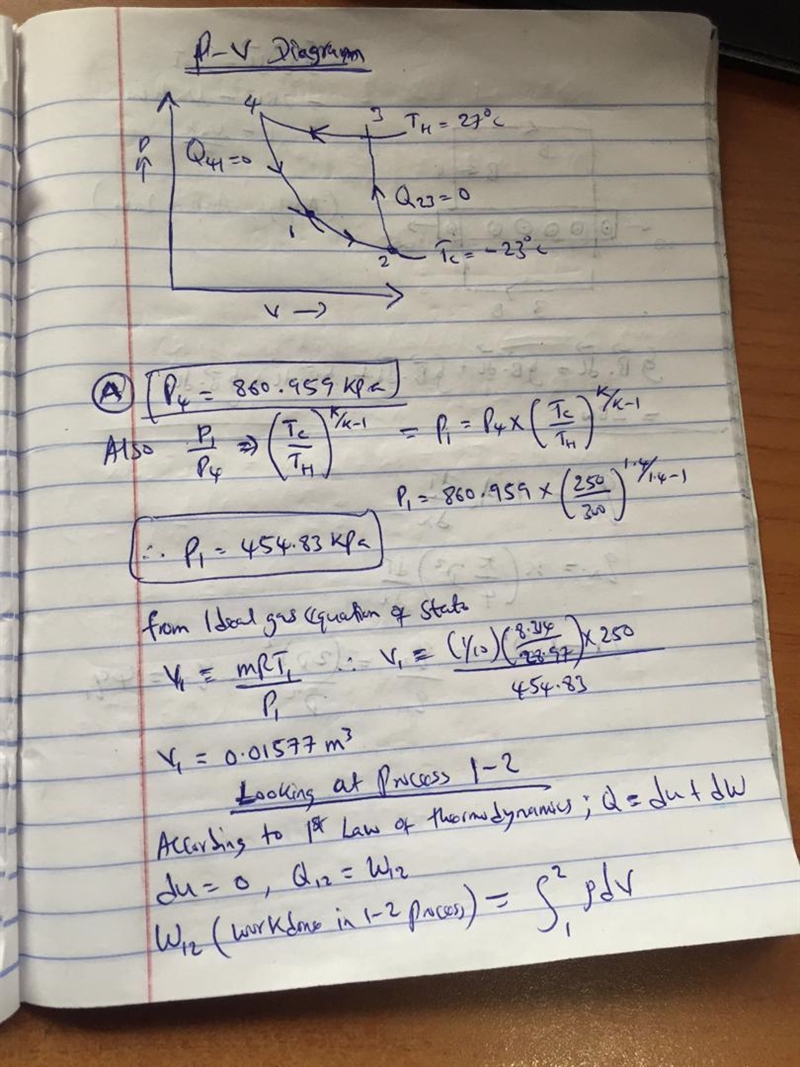 P-V Diagram
4
3
T_H = 27°C
P ↑
Q_41 = 0
Q_23 = 0
1
2
T_C = -23°C
V →
(A) [P_4 = 860.959 kPa]
Also P_1/P_4 ⇒ (T_C/T_H)^K/K-1 = P_1 = P_4 × (T_C/T_H)^K/K-1
P_1 = 860.959 × (250/300)^1.4/1.4-1
∴ P_1 = 454.83 KPa
from Ideal gas Equation of State
V_1 = mRT_1/P_1 ∴ V_1 = (1/10)(8.314/28.97)×250/454.83
V_1 = 0.01577 m³
Looking at Process 1-2
According to 1st Law of thermodynamics; Q = du + dW
du = 0, Q_12 = W_12
W_12 (workdone in 1-2 process) = ∫_1^2 PdV